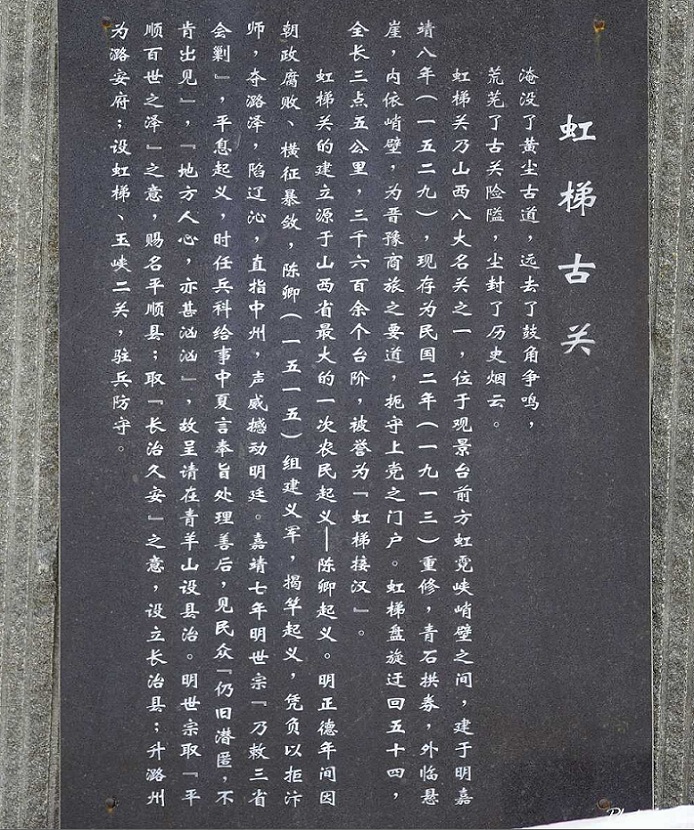 虹梯古关
淹没了黄尘古道，远去了鼓角争鸣，
荒芜了古关险隘，尘封了历史烟云。
虹梯关乃山西八大名关之一，位于观景台前方虹霓峡峭壁之间，建于明嘉
靖八年（一五二九），现存为民国二年（一九一三）重修，青石拱券，外临悬
崖，内依峭壁，为晋豫商旅之要道，扼守上党之门户。虹梯盘旋迂回五十四，
全长三点五公里，三千六百余个台阶，被誉为『虹梯接汉』。
虹梯关的建立源于山西省最大的一次农民起义—陈卿起义。明正德年间因
朝政腐败、横征暴敛，陈卿（一五一五）组建义军，揭竿起义，凭负以拒汴
师，夺潞泽，陷辽沁，直指中州，声威撼动明廷。嘉靖七年明世宗『乃敕三省
会剿』，平息起义，时任兵科给事中夏言奉旨处理善后，见民众『仍旧潜匿，不
肯出见』，『地方人心，亦甚汹汹』，故呈请在青羊山设县治。明世宗取『平
顺百世之泽』之意，赐名平顺县；取『长治久安』之意，设立长治县；升潞州
为潞安府；设虹梯、玉峡二关，驻兵防守。